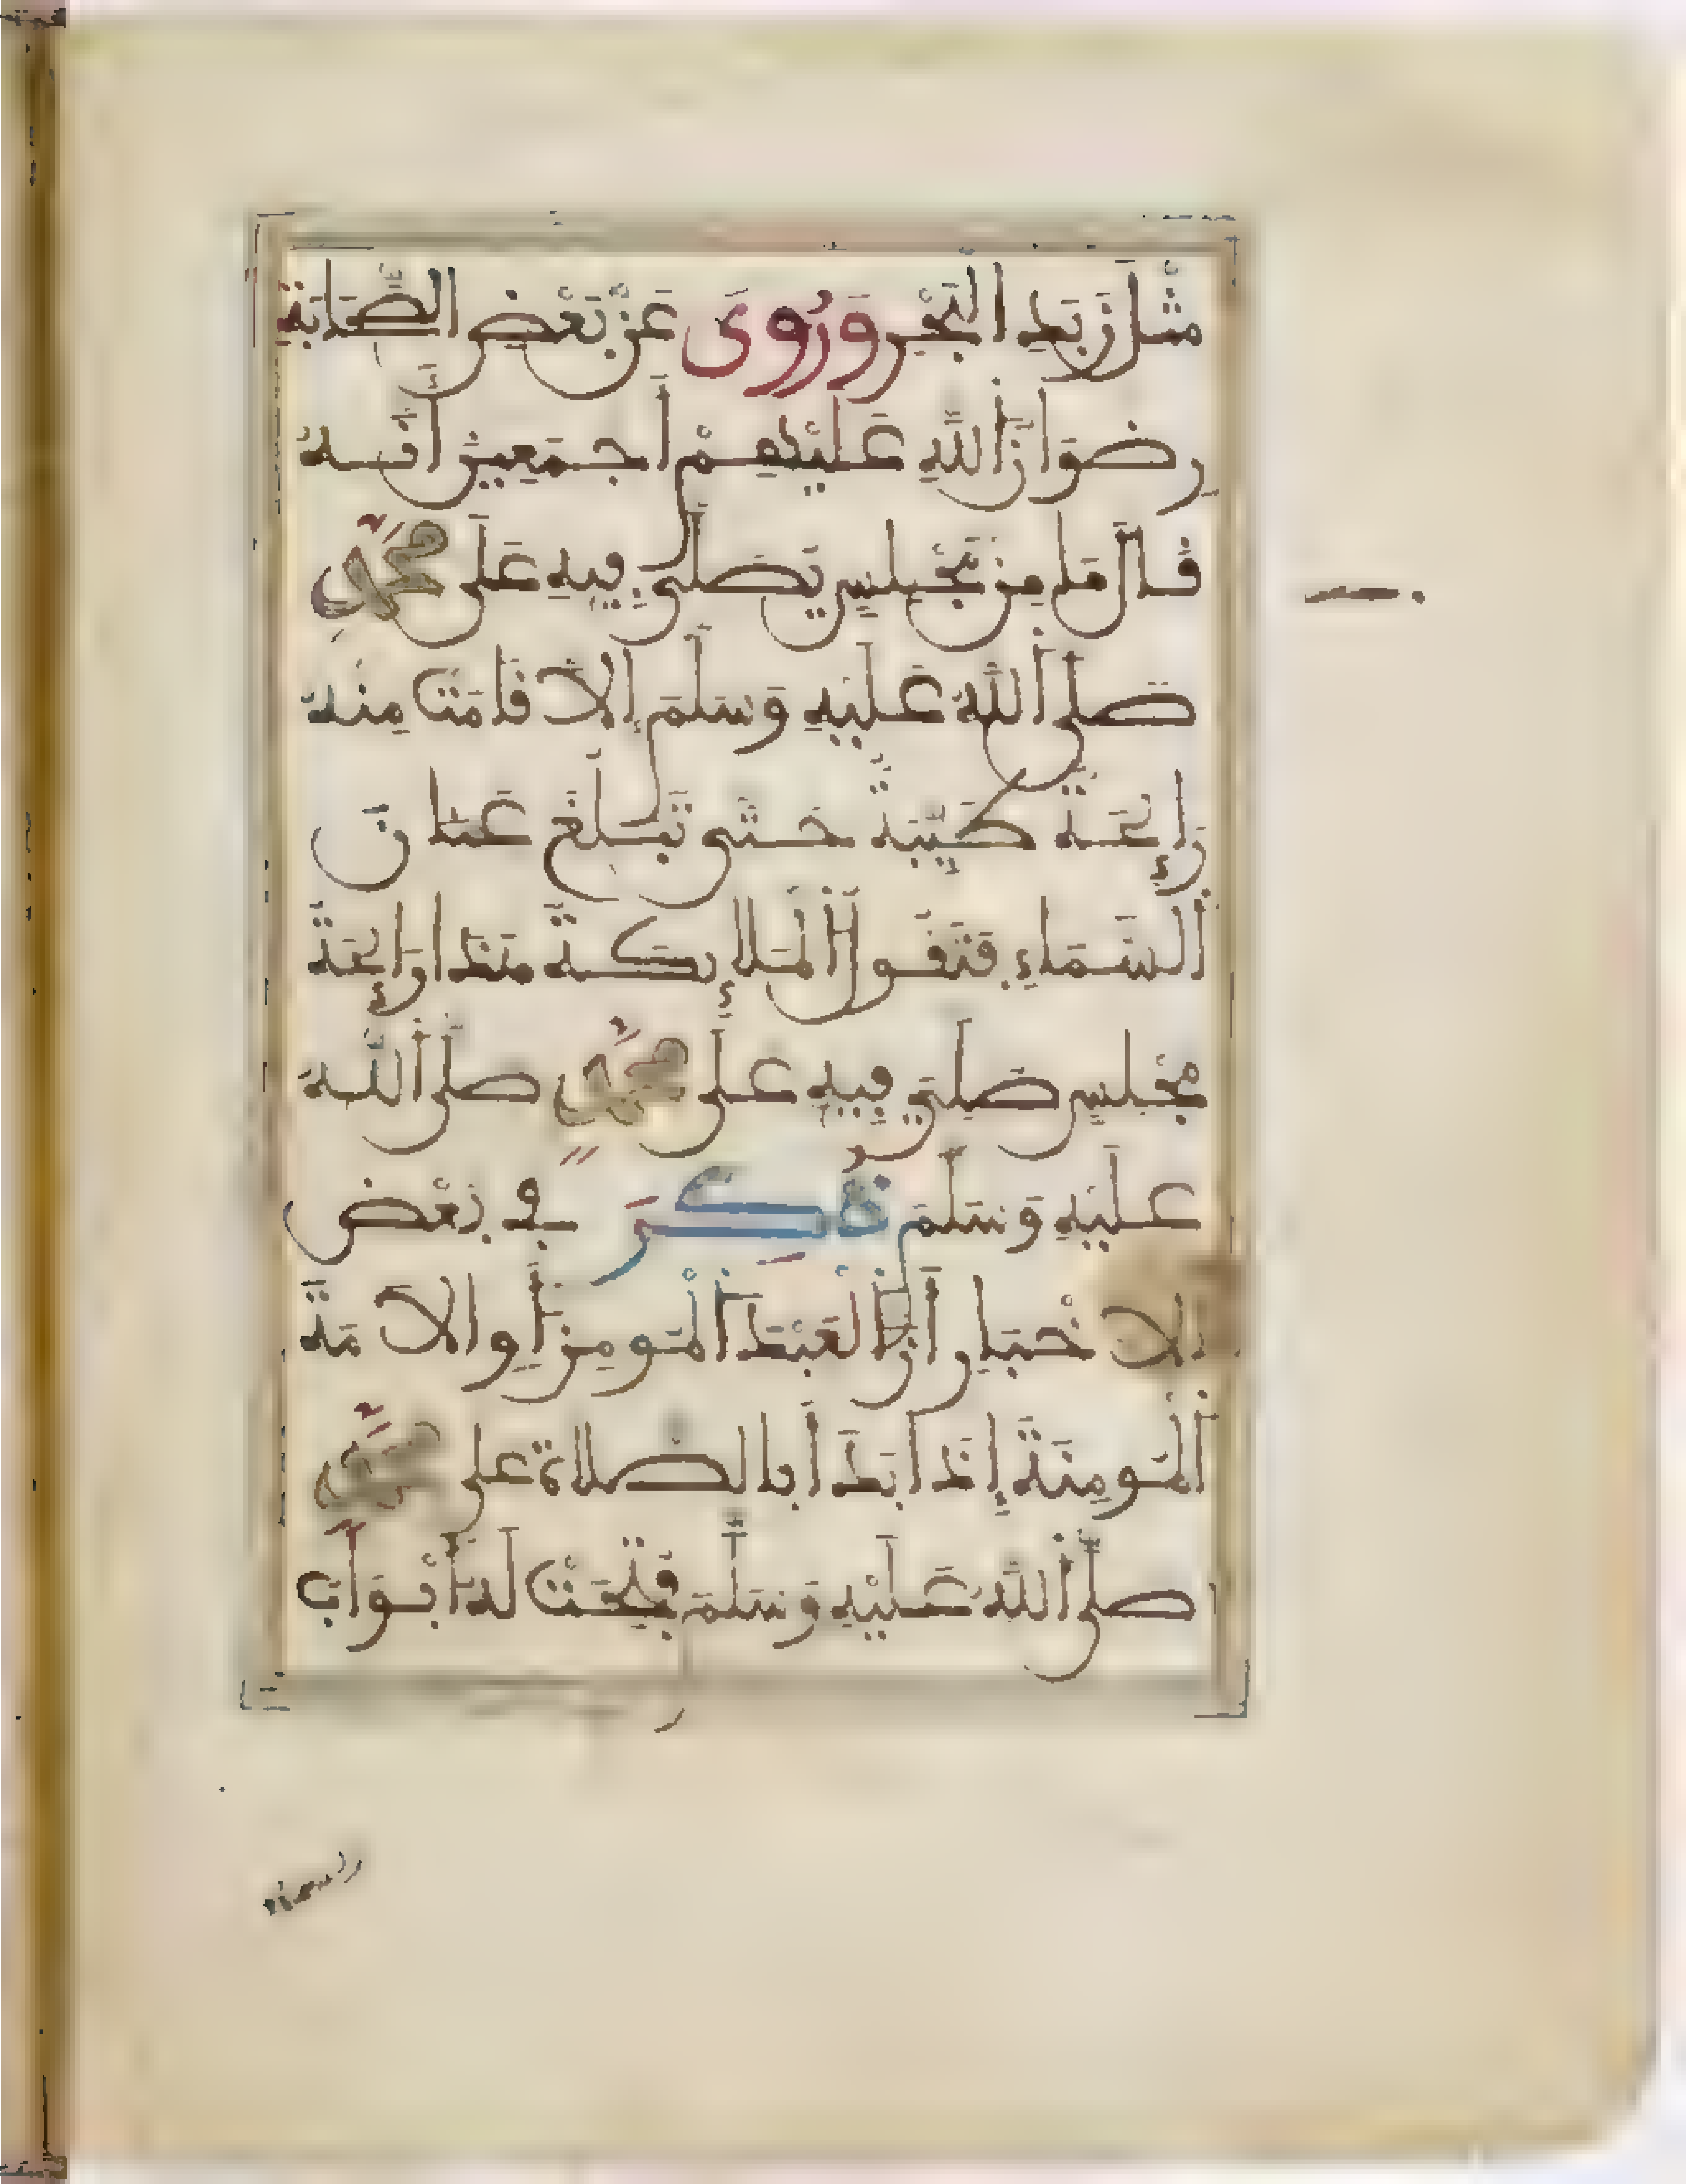 مِثْلَ زَبَدِ الْبَحْرِ وَرُوِيَ عَنْ بَعْضِ الصَّحَابَةِ
رِضْوَانُ اللَّهِ عَلَيْهِمْ أَجْمَعِينَ أَنَّهُ
قَالَ مَا مِنْ مَجْلِسٍ يُصَلَّى فِيهِ عَلَى مُحَمَّدٍ
صَلَّى اللَّهُ عَلَيْهِ وَسَلَّمَ إِلَّا قَامَتْ مِنْهُ
رَائِحَةٌ طَيِّبَةٌ حَتَّى تَبْلُغَ عَنَانَ
السَّمَاءِ فَتَقُولُ الْمَلَائِكَةُ هَذَا رَائِحَةُ
مَجْلِسٍ صُلِّيَ فِيهِ عَلَى مُحَمَّدٍ صَلَّى اللَّهُ
عَلَيْهِ وَسَلَّمَ ذُكِرَ فِي بَعْضِ
الْأَخْبَارِ أَنَّ الْعَبْدَ الْمُومِنَ أَوِ الْأَمَةَ
الْمُومِنَةَ إِذَا بَدَأَ بِالصَّلَاةِ عَلَى مُحَمَّدٍ
صَلَّى اللَّهُ عَلَيْهِ وَسَلَّمَ فُتِحَتْ لَهُ أَبْوَابُ